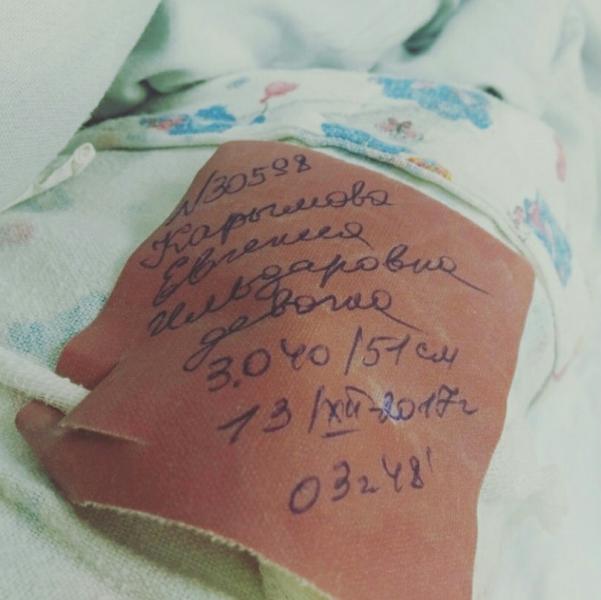 N30598
Карымова
Евгения
Ильдаровна
девочка
3.040/51см
13/XII-2017г
03ч48'